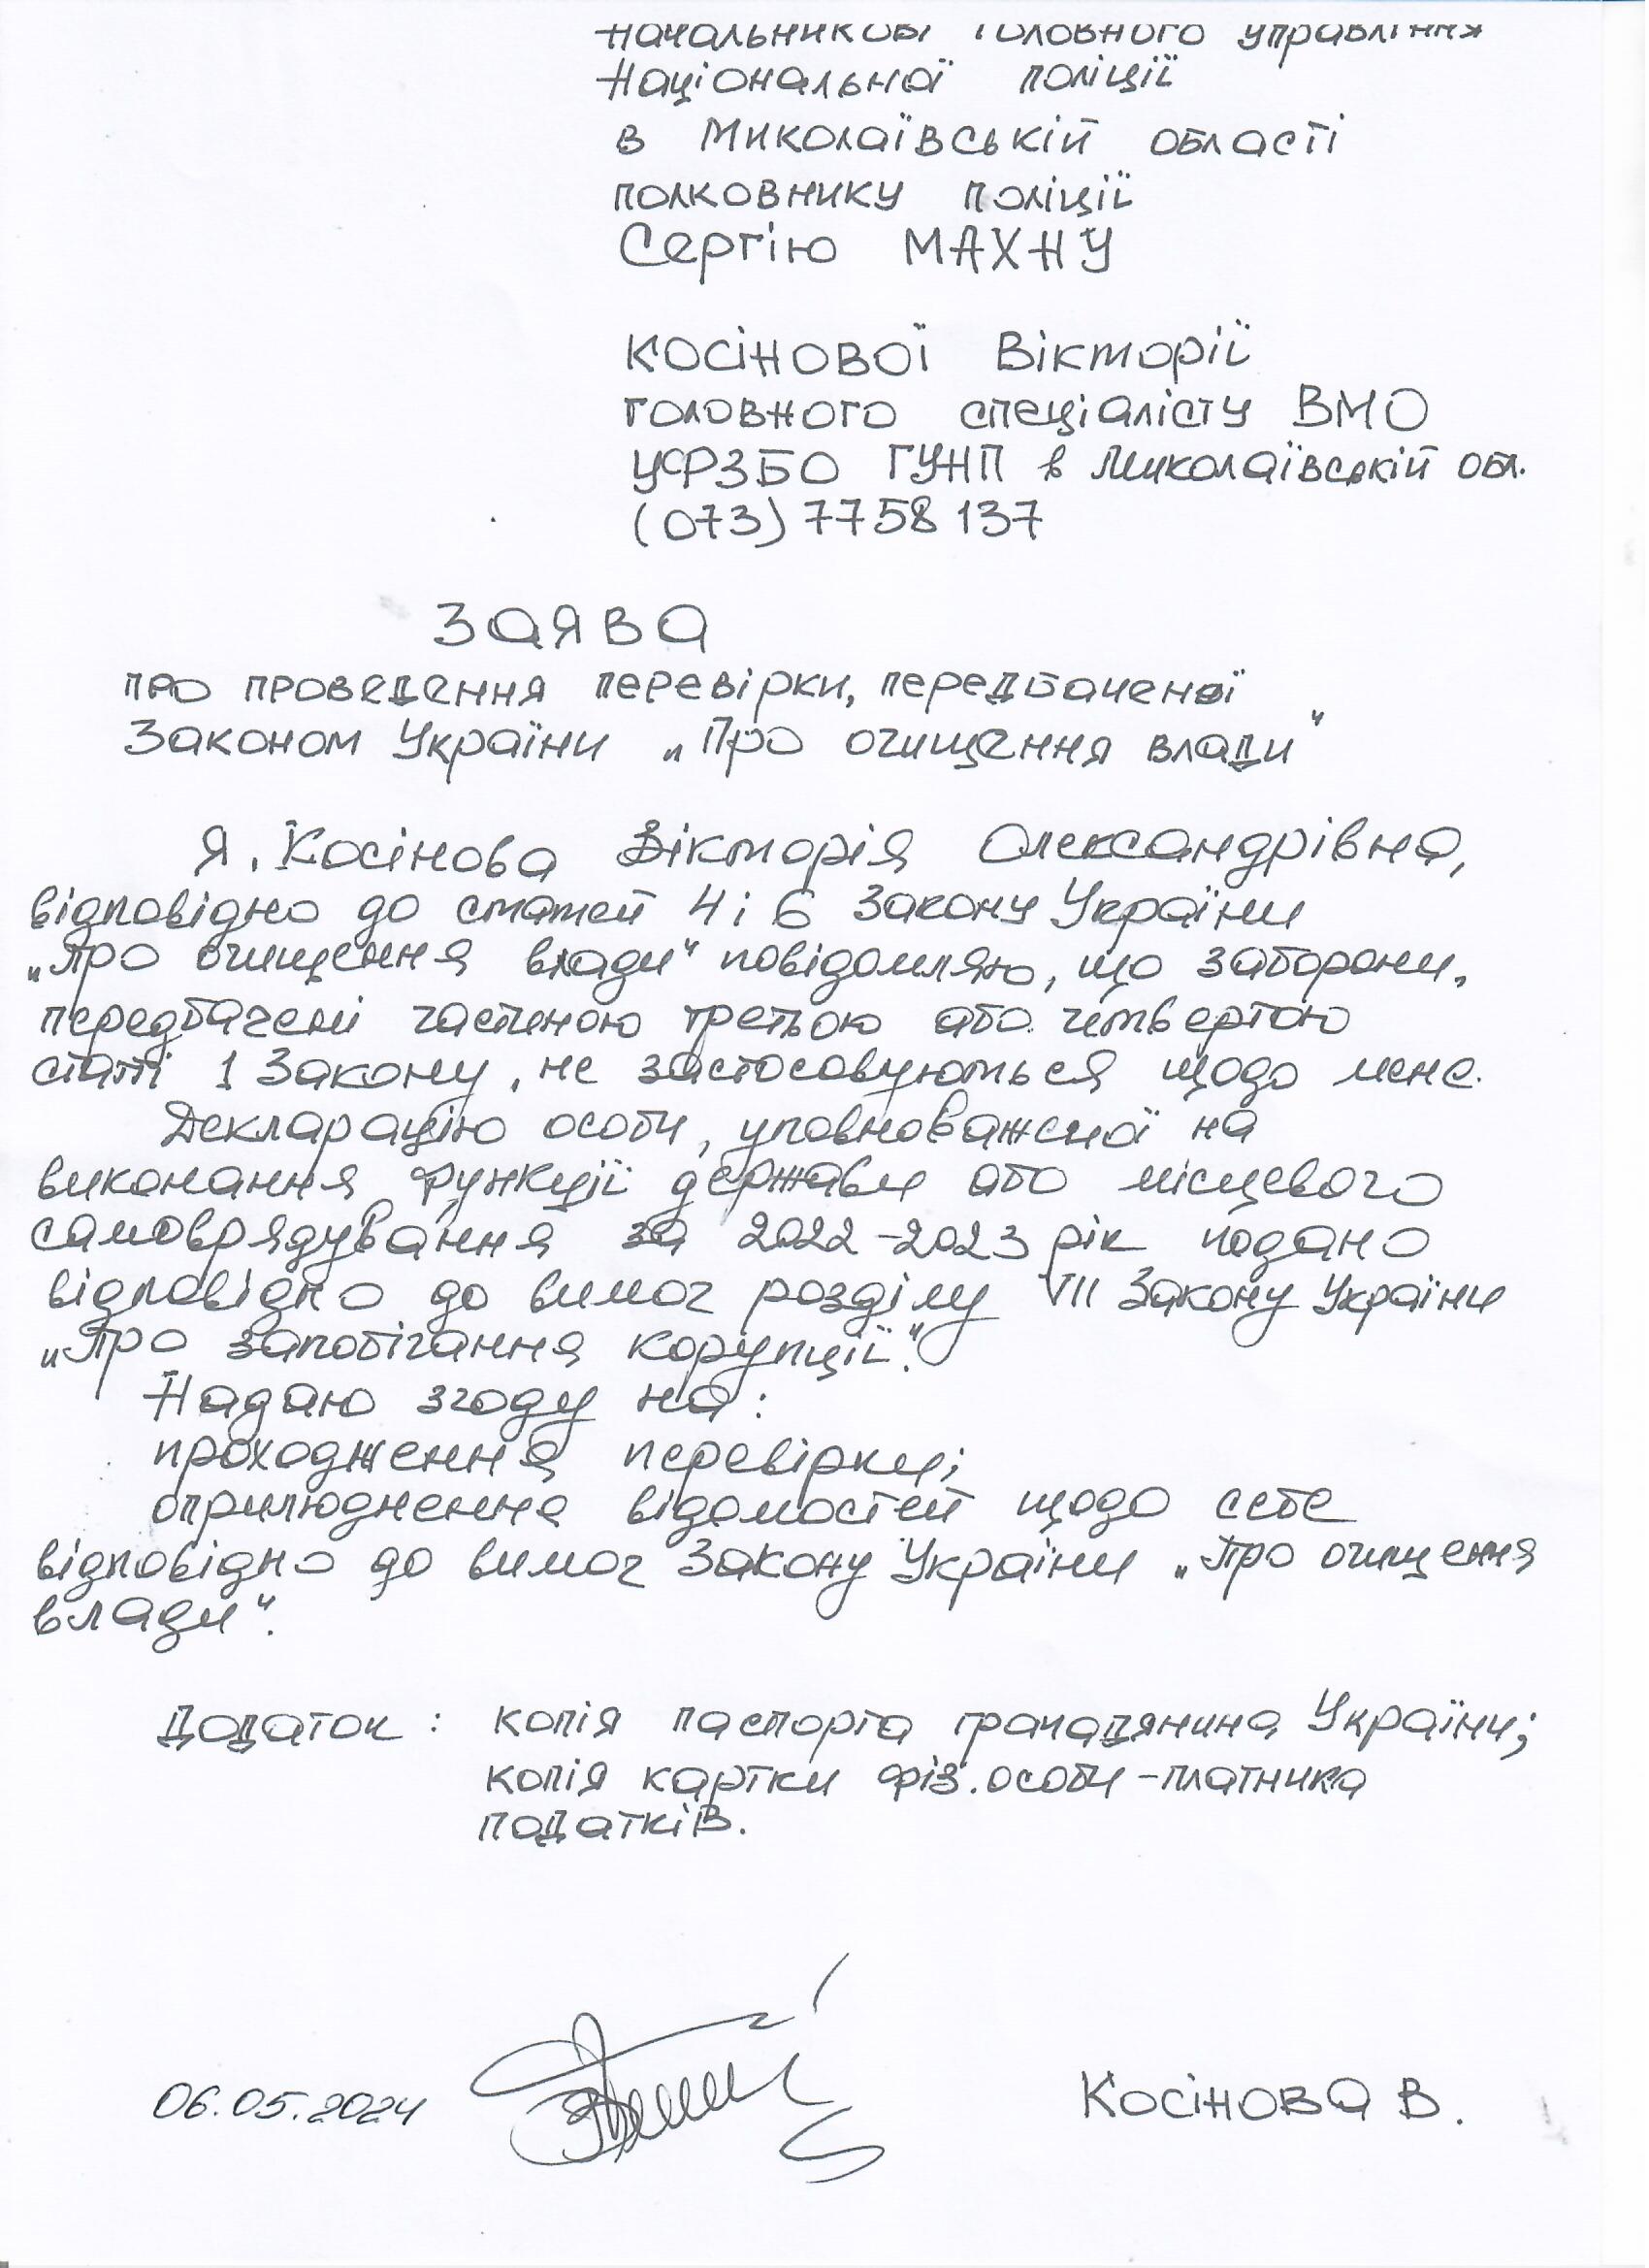 Начальникові Головного управління
Національної поліції
в Миколаївській області
полковнику поліції
Сергію МАХНУ
КОСІНОВОЇ Вікторії
головного спеціалісту ВМО
УФЗБО ГУНП в Миколаївській обл.
(073) 7758137
ЗАЯВА
про проведення перевірки, передбаченої
Законом України „Про очищення влади"
Я, Косінова Вікторія Олександрівна,
відповідно до статей 4 і 6 Закону України
„Про очищення влади" повідомляю, що заборони,
передбачені частиною третьою або четвертою
статті 1 Закону, не застосовуються щодо мене.
Декларацію особи, уповноваженої на
виконання функції держави або місцевого
самоврядування за 2022-2023 рік подано
відповідно до вимог розділу VII Закону України
„Про запобігання корупції".
Надаю згоду на:
проходження перевірки;
оприлюднення відомостей щодо себе
відповідно до вимог Закону України „Про очищення
влади".
Додаток: копія паспорта грамадянина України;
копія картки фіз. особи-платника
податків.
06.05.2024 Косінова В.